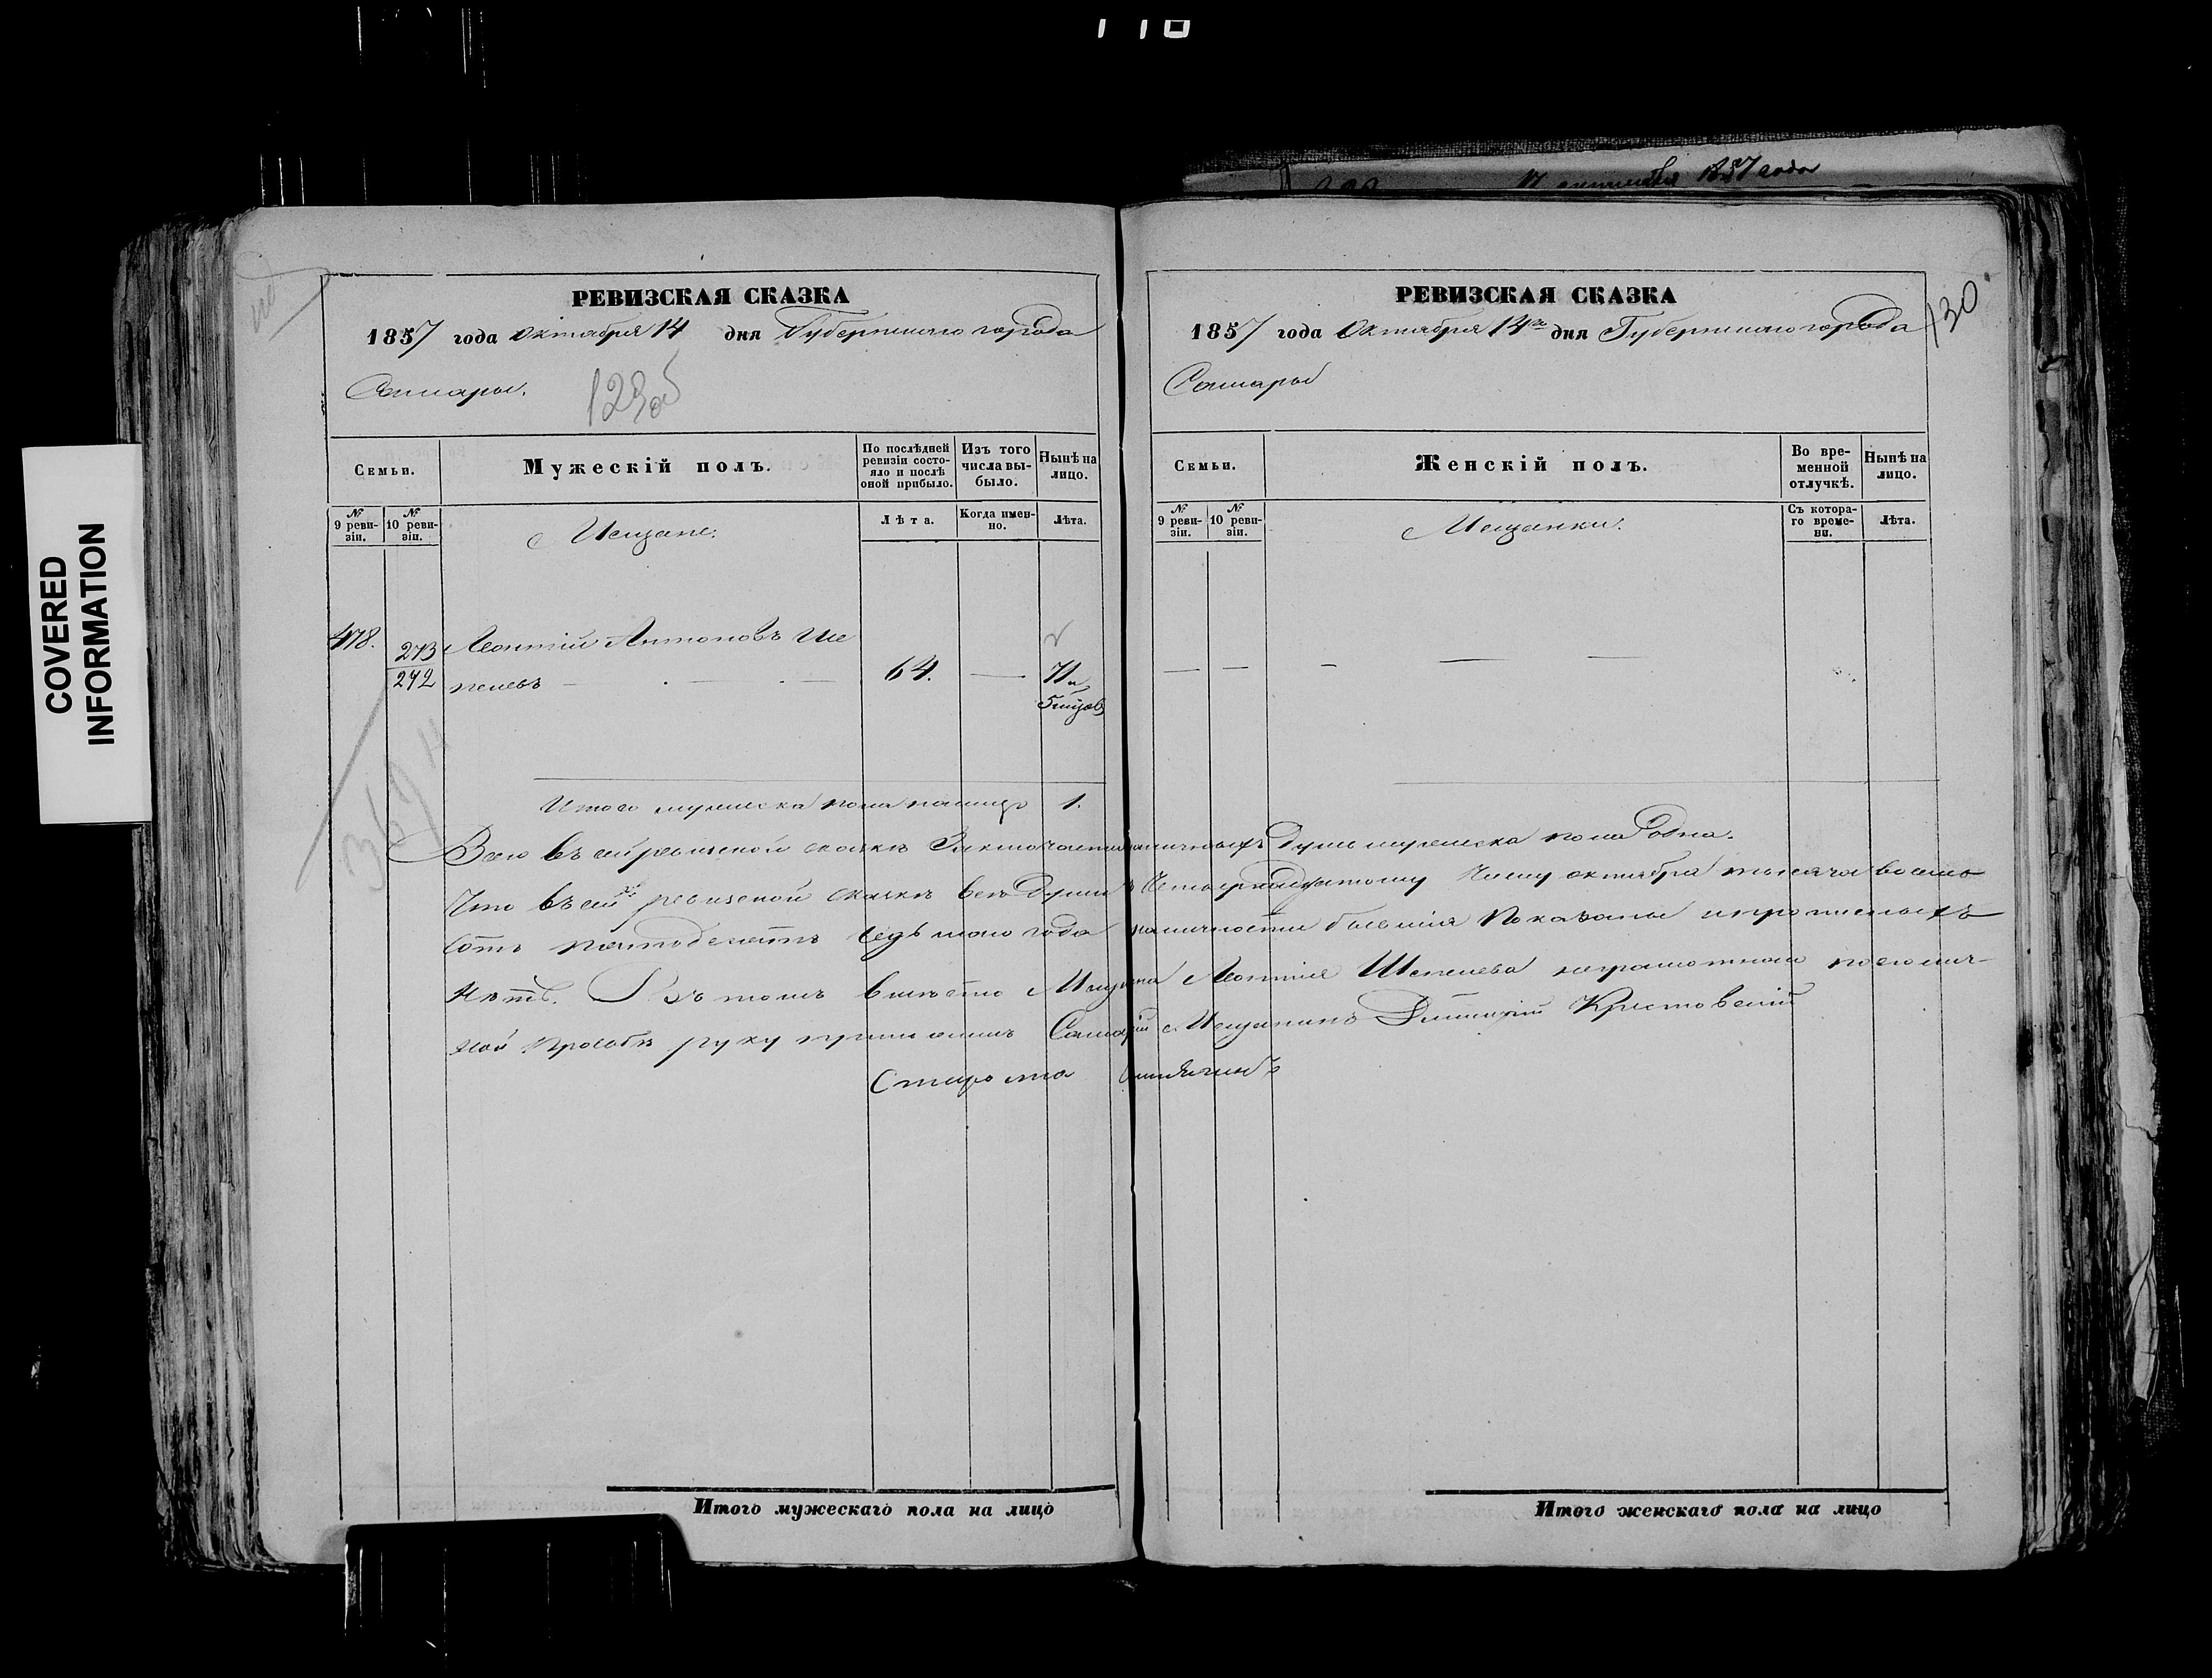 COVERED
INFORMATION
17 октября 1857 года
РЕВИЗСКАЯ СКАЗКА
1857 года Октября 14 дня Губернскаго города
Самары.
129об
Семьи.
Мужескій полъ.
По послѣдней ревизіи состояло и послѣ оной прибыло.
Изъ того числа выбыло.
Нынѣ на лицо.
№ 9 ревизіи.
№ 10 ревизіи.
Мещане.
Лѣта.
Когда именно.
Лѣта.
478.
273
272
Леонтій Антоновъ Ше
пелевъ
64.
71 и
5 мцов
Итого мужеска пола налицо 1.
367
РЕВИЗСКАЯ СКАЗКА
130
1857 года Октября 14го дня Губернскаго города
Самары
Семьи.
Женскій полъ.
Во временной отлучкѣ.
Нынѣ на лицо.
№ 9 ревизіи.
№ 10 ревизіи.
Мещанки.
Съ котораго времени.
Лѣта.
Всего въ сей ревизской сказкѣ Заключается наличныхъ Душъ мужеска пола Одна.
Что въ сей ревизской сказкѣ все Души к Четырнадцатому Числу октября тысяча восемь
сотъ пятьдесятъ седьмого года наличности бывшія Показаны и прописныхъ
Нѣтъ. Въ томъ вместо Мещанина Леонтія Шепелева неграмотнаго по его лич-
ной Прозбѣ руку приложилъ Самарій Мещанинъ Дмитрій Крестовскій
Староста
Итого мужескаго пола на лицо
Итого женскаго пола на лицо